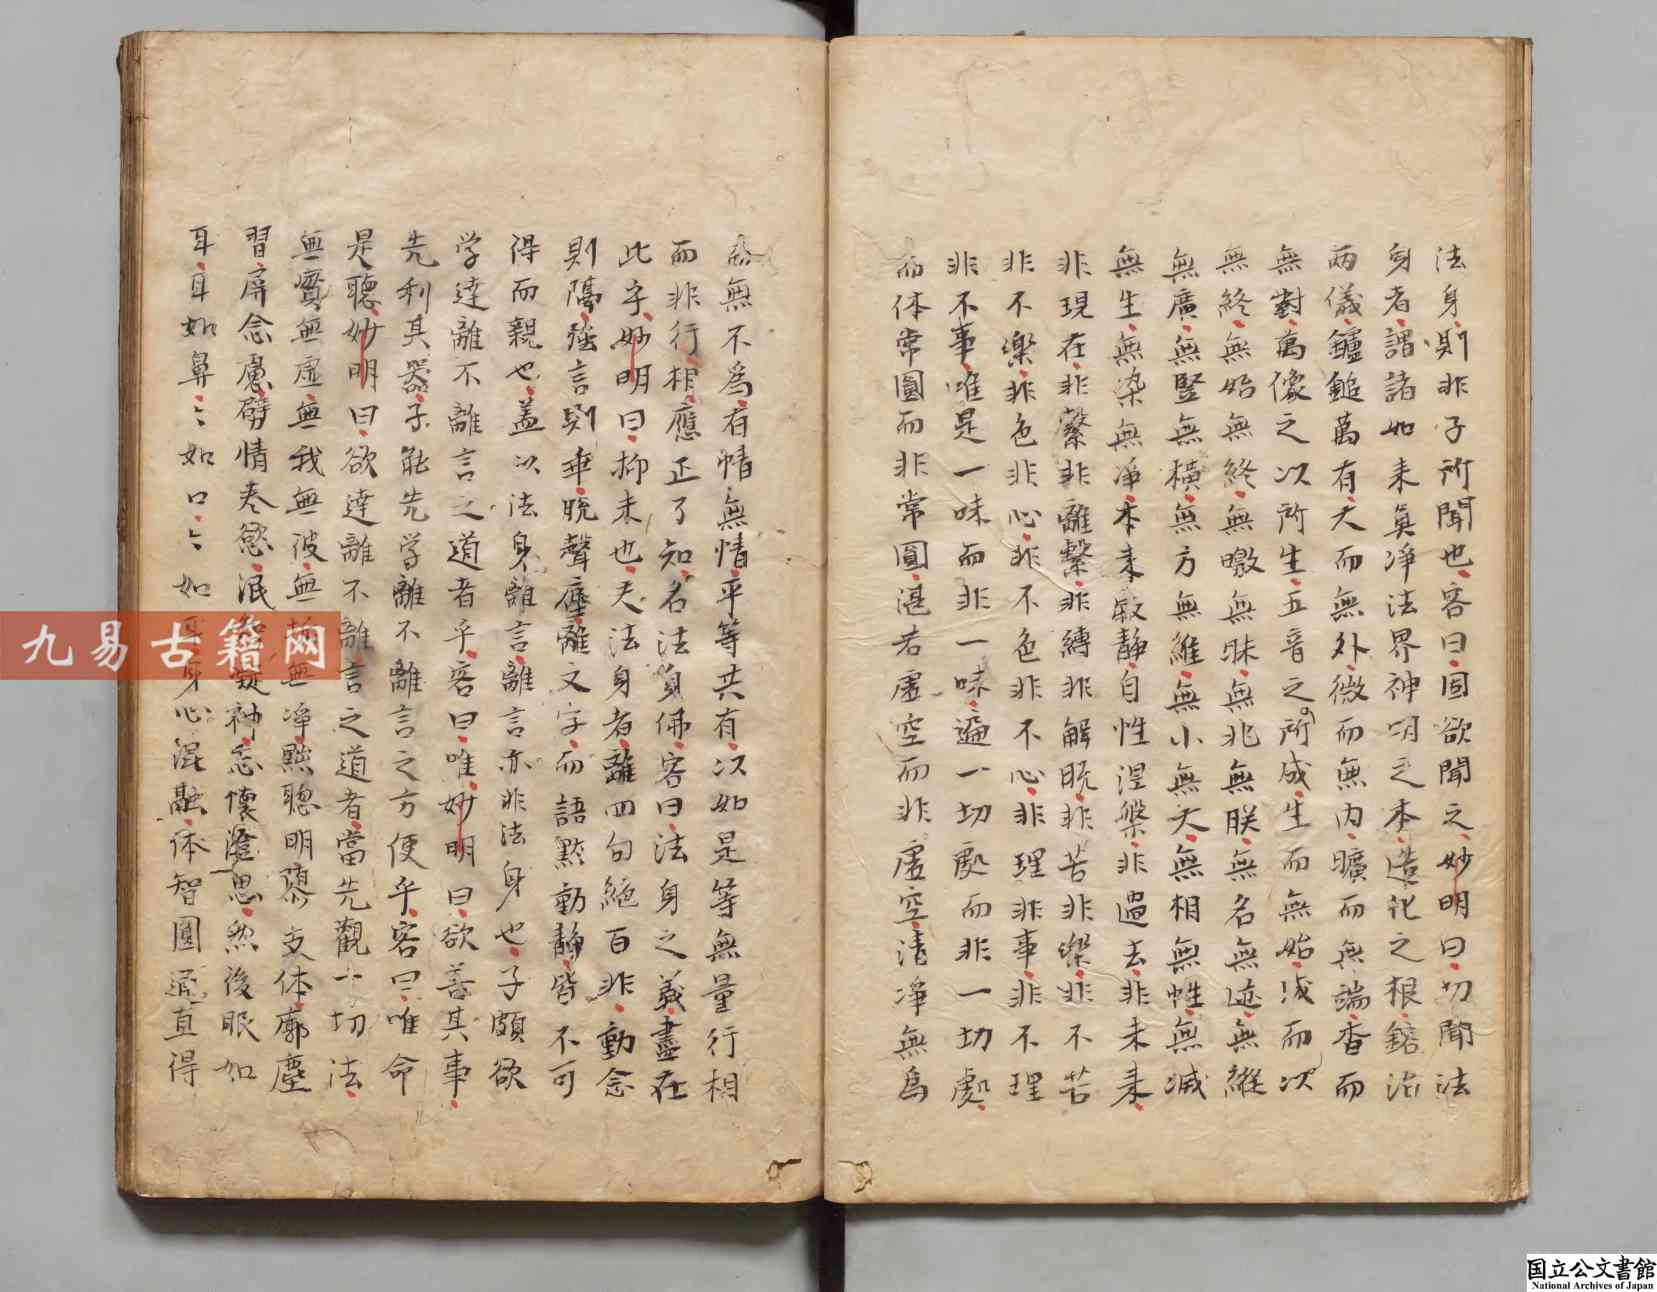 法身則非子所聞也客曰固欲聞之妙明曰切聞法
身者謂諸如来真淨法界神明之本造化之根鎔冶
兩儀鑪鎚萬有大而無外微而無内曠而無端杳而
無對萬像之以所生五音之所成生而無始成而以
無終無始無終無曒無昧無兆無朕無名無迹無縱
無廣無竪無橫無方無維無小無大無相無性無減
無生無染無淨本来寂静自性涅槃非過去非未来
非現在非繫非離繫非縛非解脱非苦非樂非不苦
非不樂非色非心非不色非不心非理非事非不理
非不事唯是一味而非一味遍一切處而非一切處
而体常圓而非常圓湛若虚空而非虚空清淨無爲
而無不爲有情無情平等共有以如是等無量行相
而非行相應正了知名法身佛客曰法身之義盡在
此乎妙明曰抑未也夫法身者離四句絶百非動念
則隔強言則乖脱聲塵離文字而語黙動静皆不可
得而親也盖以法身離言離言亦非法身也子頗欲
学達離不離言之道者乎客曰唯妙明曰欲善其事
先利其器子能先学離不離言之方便乎客曰唯命
是聽妙明曰欲達離不離言之道者當先觀一切法
無實無虚無我無彼無無淨黜聰明隳支体廓塵
習屏念慮劈情巻慾泯神忘懷澄思然後眼如
耳耳如鼻〻如口〻如身心混融体智圓通直得
九易古籍网
国立公文書館
National Archives of Japan